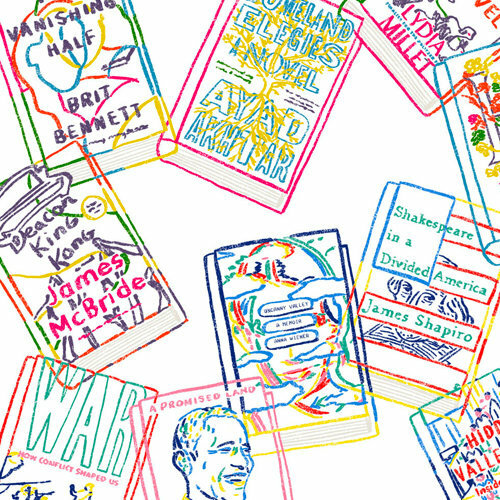 VANISHING
HALF
BRIT
BENNETT
HOMELAND
ELEGIES
A NOVEL
AYAD
AKHTAR
LYDIA
MILLET
Deacon
King
Kong
James
McBride
UNCANNY VALLEY
A MEMOIR
ANNA WIENER
Shakespeare
in a
Divided America
James Shapiro
WAR
HOW CONFLICT SHAPED US
A PROMISED LAND
HIDD
VALL